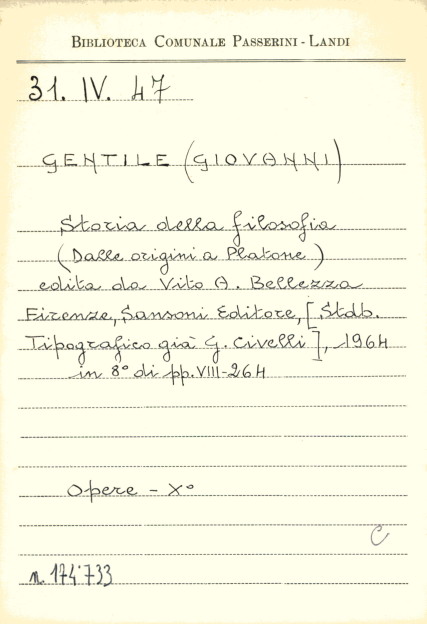 BIBLIOTECA COMUNALE PASSERINI-LANDI
31. IV. 47
GENTILE (GIOVANNI)
Storia della filosofia
(Dalle origini a Platone)
edita da Vito A. Bellezza
Firenze, Sansoni Editore, [Stab.
Tipografico già G. Civelli], 1964
in 8° di pp. VIII-264
Opere - X°
C
n. 174'733